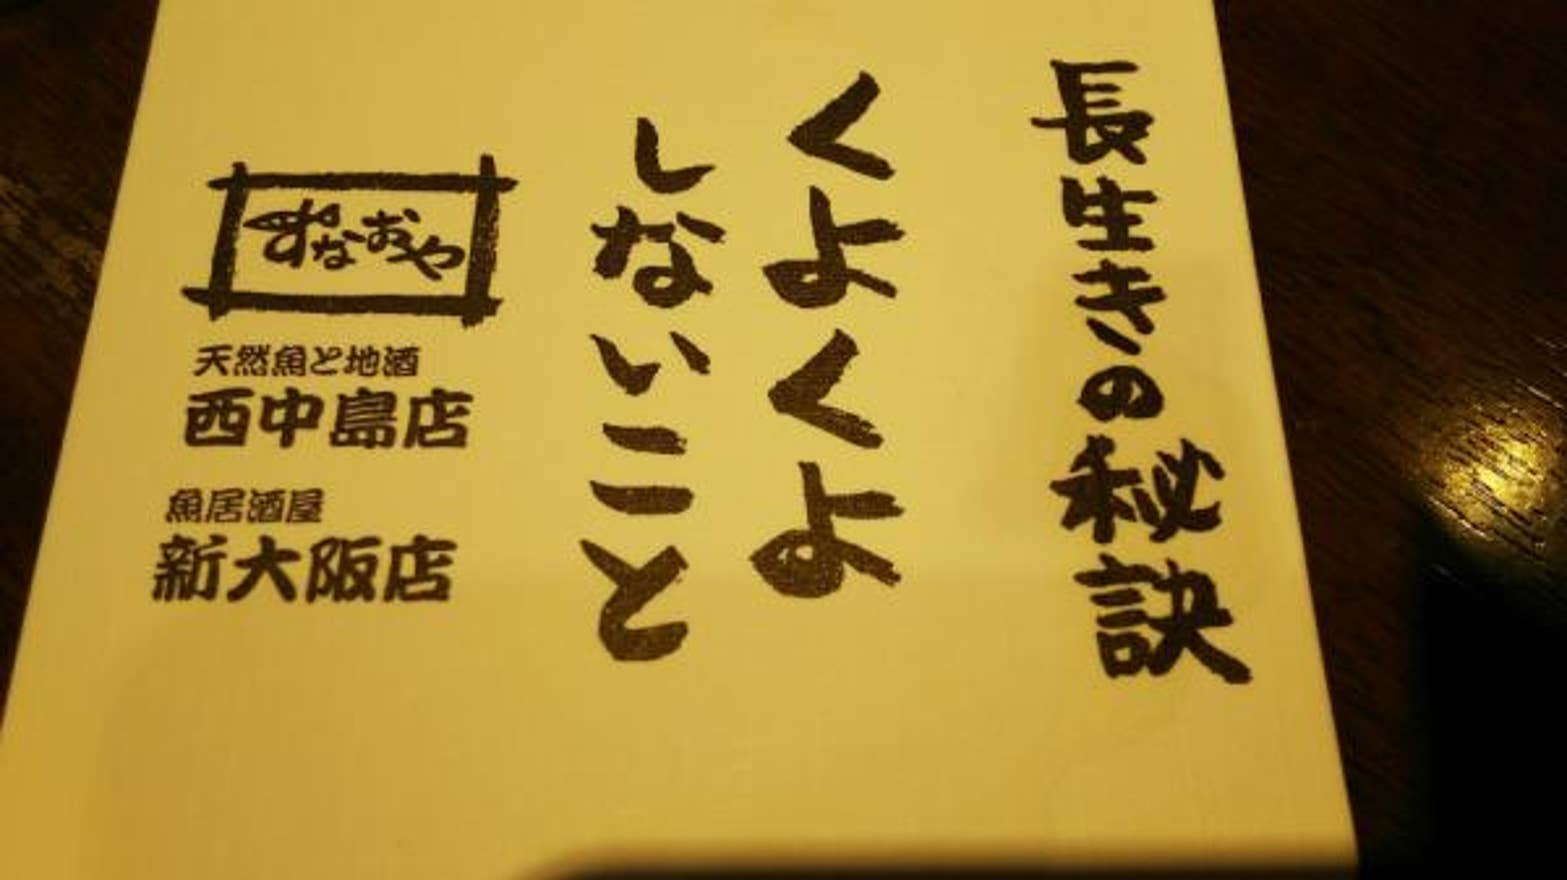 長生きの秘訣
くよくよ
しないこと
すなおや
天然魚と地酒
西中島店
魚居酒屋
新大阪店